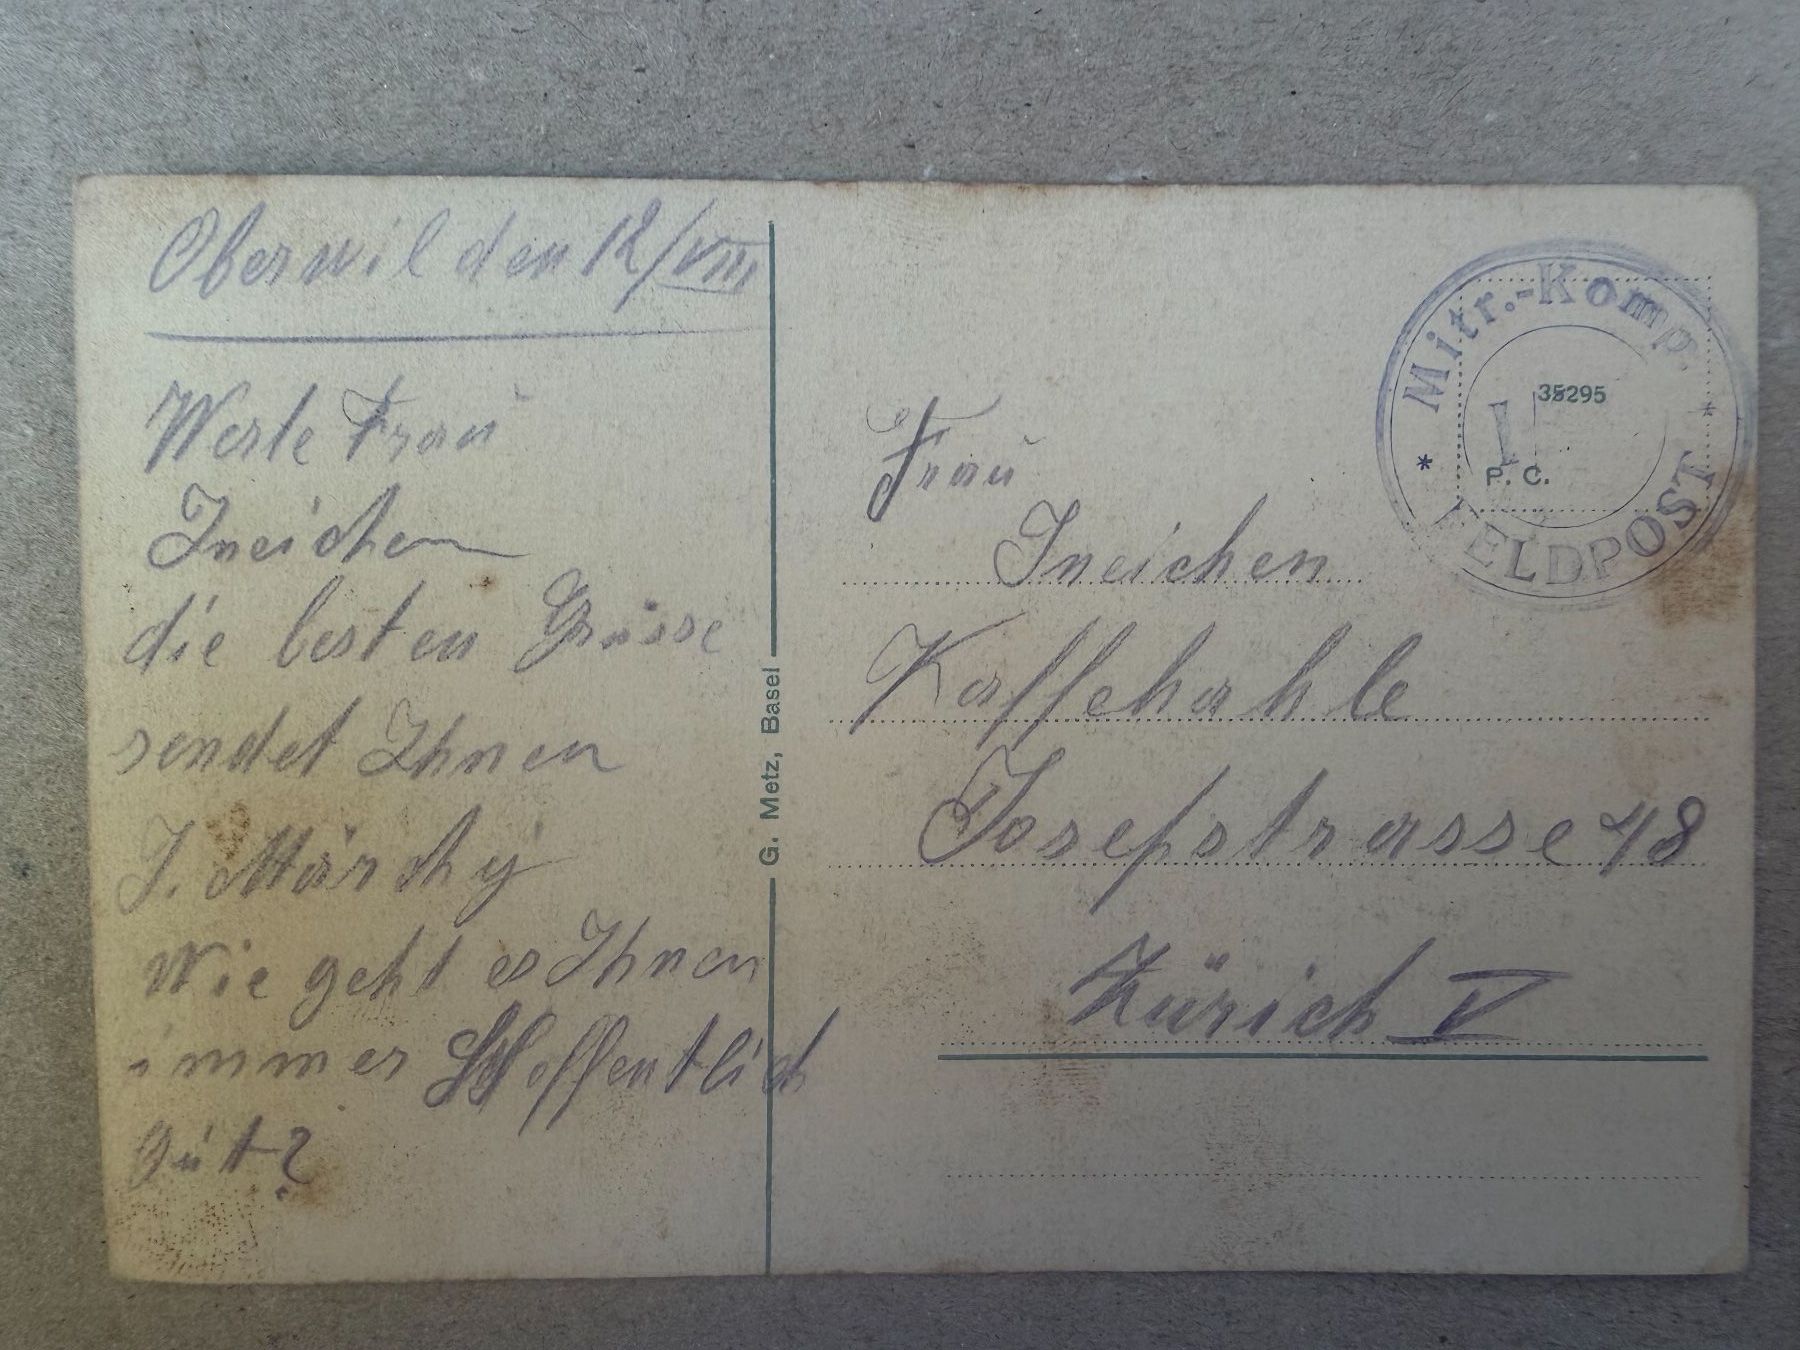 Oberwil den 12/VIII
Werte Frau
Ineichen
die besten Grüsse
sendet Ihnen
J. Märchy
Wie geht es Ihnen
immer Hoffentlich
Gut?
G. Metz, Basel
Mitr.-Komp.
35295
P. C.
FELDPOST
Frau
Ineichen
Kaffehahle
Josefstrasse 48
Zürich V